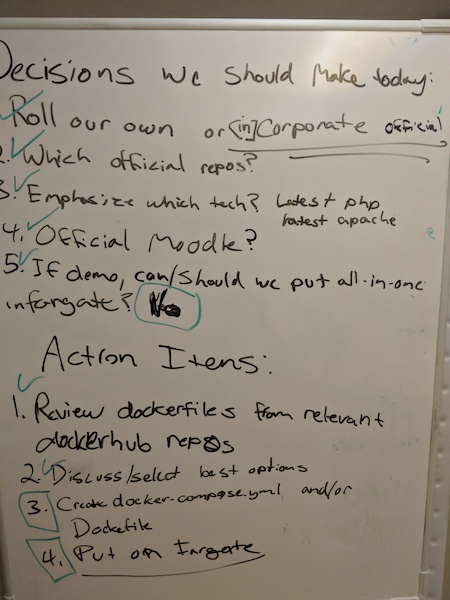 Decisions we should make today:
Roll our own or [in]Corporate official
2. Which official repos?
3. Emphasize which tech? Latest php
latest apache
4. Official Moodle?
5. If demo, can/should we put all-in-one
in fargate? No
Action Items:
1. Review dockerfiles from relevant
dockerhub repos
2. Discuss/select best options
3. Create docker-compose.yml and/or
Dockefile
4. Put on Fargate